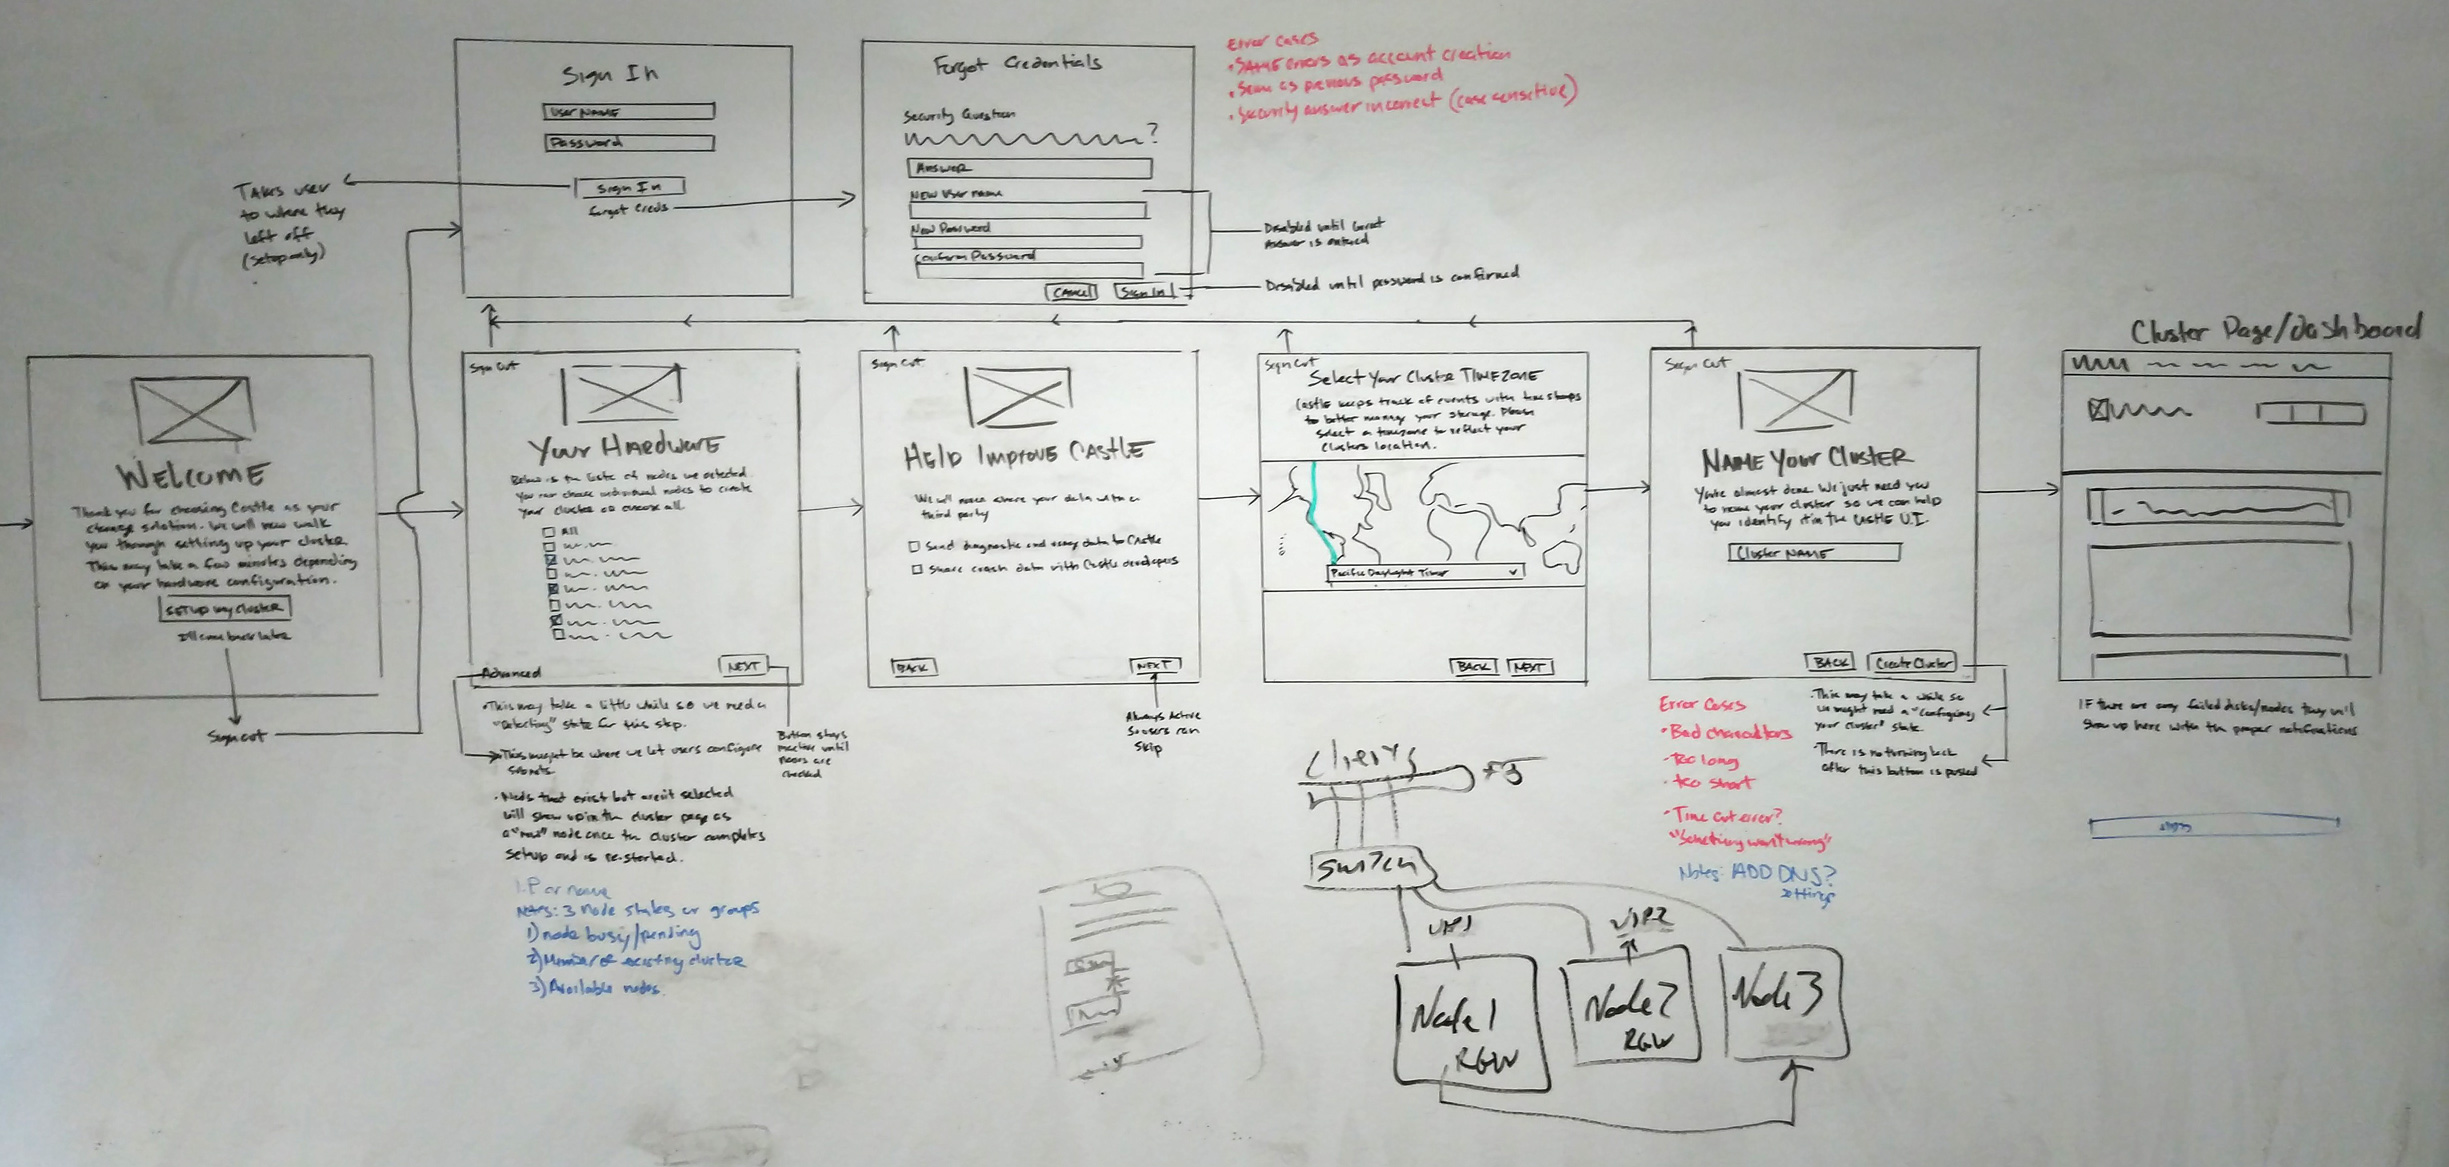 Sign In
User NAME
Password
Sign In
forgot Creds
Takes user
to where they
left off
(setup only)
Forgot Credentials
Security Question
?
Answer
New User name
New Password
Confirm Password
CANCEL
Sign In
Error Cases
• SAME errors as account creation
• Same as previous password
• Security answer incorrect (case sensitive)
Disabled until correct
Answer is entered
Disabled until password is confirmed
WELCOME
Thank you for choosing Castle as your
storage solution. We will now walk
you through setting up your cluster
This may take a few minutes depending
on your hardware configuration.
SETUP my cluster
I'll come back later
Sign out
Sign Out
Your HARDWARE
Below is the liste of nodes we detected
You can choose individual nodes to create
your cluster or choose all.
All
Advanced
NEXT
• This may take a little while so we need a
"Detecting" state for this step.
• This might be where we let users configure
subnets.
• Nodes that exist but aren't selected
will show up in the cluster page as
a "new" node once the cluster completes
setup and is re-started.
I.P or name
Notes: 3 node states or groups
1) node busy/pending
2) Member of existing cluster
3) Available nodes.
Button stays
inactive until
nodes are
checked
Sign Out
HELP IMPROVE CASTLE
We will never share your data with a
third party
Send diagnostic and usage data to Castle
Share crash data with Castle developers
BACK
NEXT
Always Active
so users can
Skip
Sign Out
Select Your Cluster TIMEZONE
Castle keeps track of events with time stamps
to better manage your storage. Please
select a timezone to reflect your
Clusters location.
Pacific Daylight Time
BACK
NEXT
Sign Out
NAME YOUR CLUSTER
You're almost done. We just need you
to name your cluster so we can help
you identify it in the Castle U.I.
Cluster NAME
BACK
Create Cluster
Error Cases
• Bad characters
• Too long
• too short
• Time out error?
"Something went wrong"
Notes: ADD DNS?
settings
• This may take a while so
we might need a "configuring
your cluster" state.
• There is no turning back
after this button is pushed
Cluster Page/dashboard
IF there are any failed disks/nodes they will
show up here with the proper notifications
Clients
Switch
VIP1
VIP2
Node 1
RGW
Node 2
RGW
Node 3